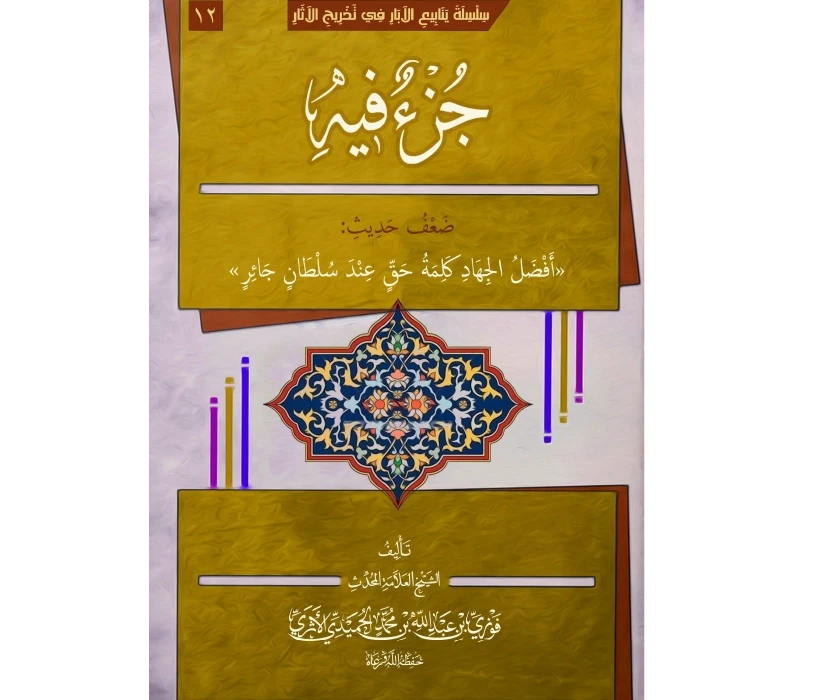 سِلْسِلَةُ يَنَابِيعِ الآبَارِ فِي تَخْرِيجِ الآثَارِ
١٢
جُزْءٌ فِيهِ
ضَعْفُ حَدِيثِ:
«أَفْضَلُ الجِهَادِ كَلِمَةُ حَقٍّ عِنْدَ سُلْطَانٍ جَائِرٍ»
تَأْلِيفُ
الشَّيْخِ العَلَّامَةِ المُحَدِّثِ
فَوْزِيِّ بْنِ عَبْدِ اللَّهِ بْنِ مُحَمَّدٍ الحُمَيْدِيِّ الأَثَرِيِّ
حَفِظَهُ اللَّهُ وَرَعَاهُ